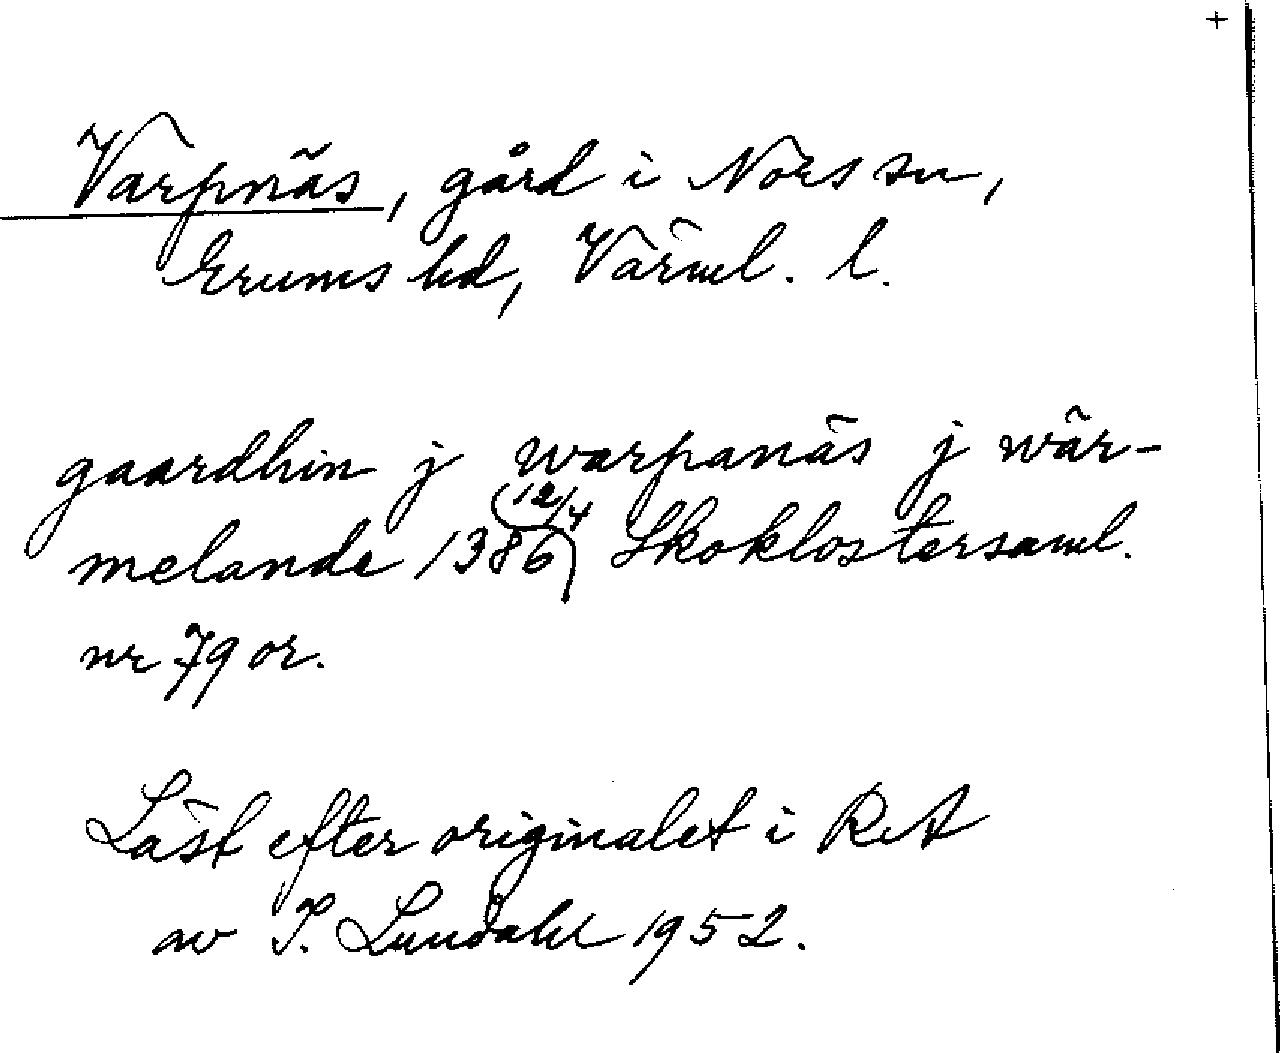 +
Varpnäs, gård i Nors sn,
Grums hd, Värml. l.
gaardhin j warpanäs j wär-
melande 1386 (12/4) Skoklostersaml.
nr 79 or.
Läst efter originalet i RA
av I. Lundahl 1952.